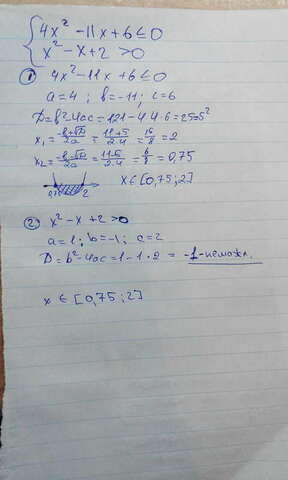 4x² - 11x + 6 ≤ 0
x² - x + 2 > 0
① 4x² - 11x + 6 ≤ 0
a = 4 ; b = -11 ; c = 6
D = b² - 4ac = 121 - 4·4·6 = 25 = 5²
x₁ = (-b+√D)/2a = (11+5)/2·4 = 16/8 = 2
x₂ = (-b-√D)/2a = (11-5)/2·4 = 6/8 = 0,75
2 x ∈ [0,75 ; 2]
② x² - x + 2 > 0
a = 1 ; b = -1 ; c = 2
D = b² - 4ac = 1 - 1 · 2 = -1
x ∈ [0,75 ; 2]